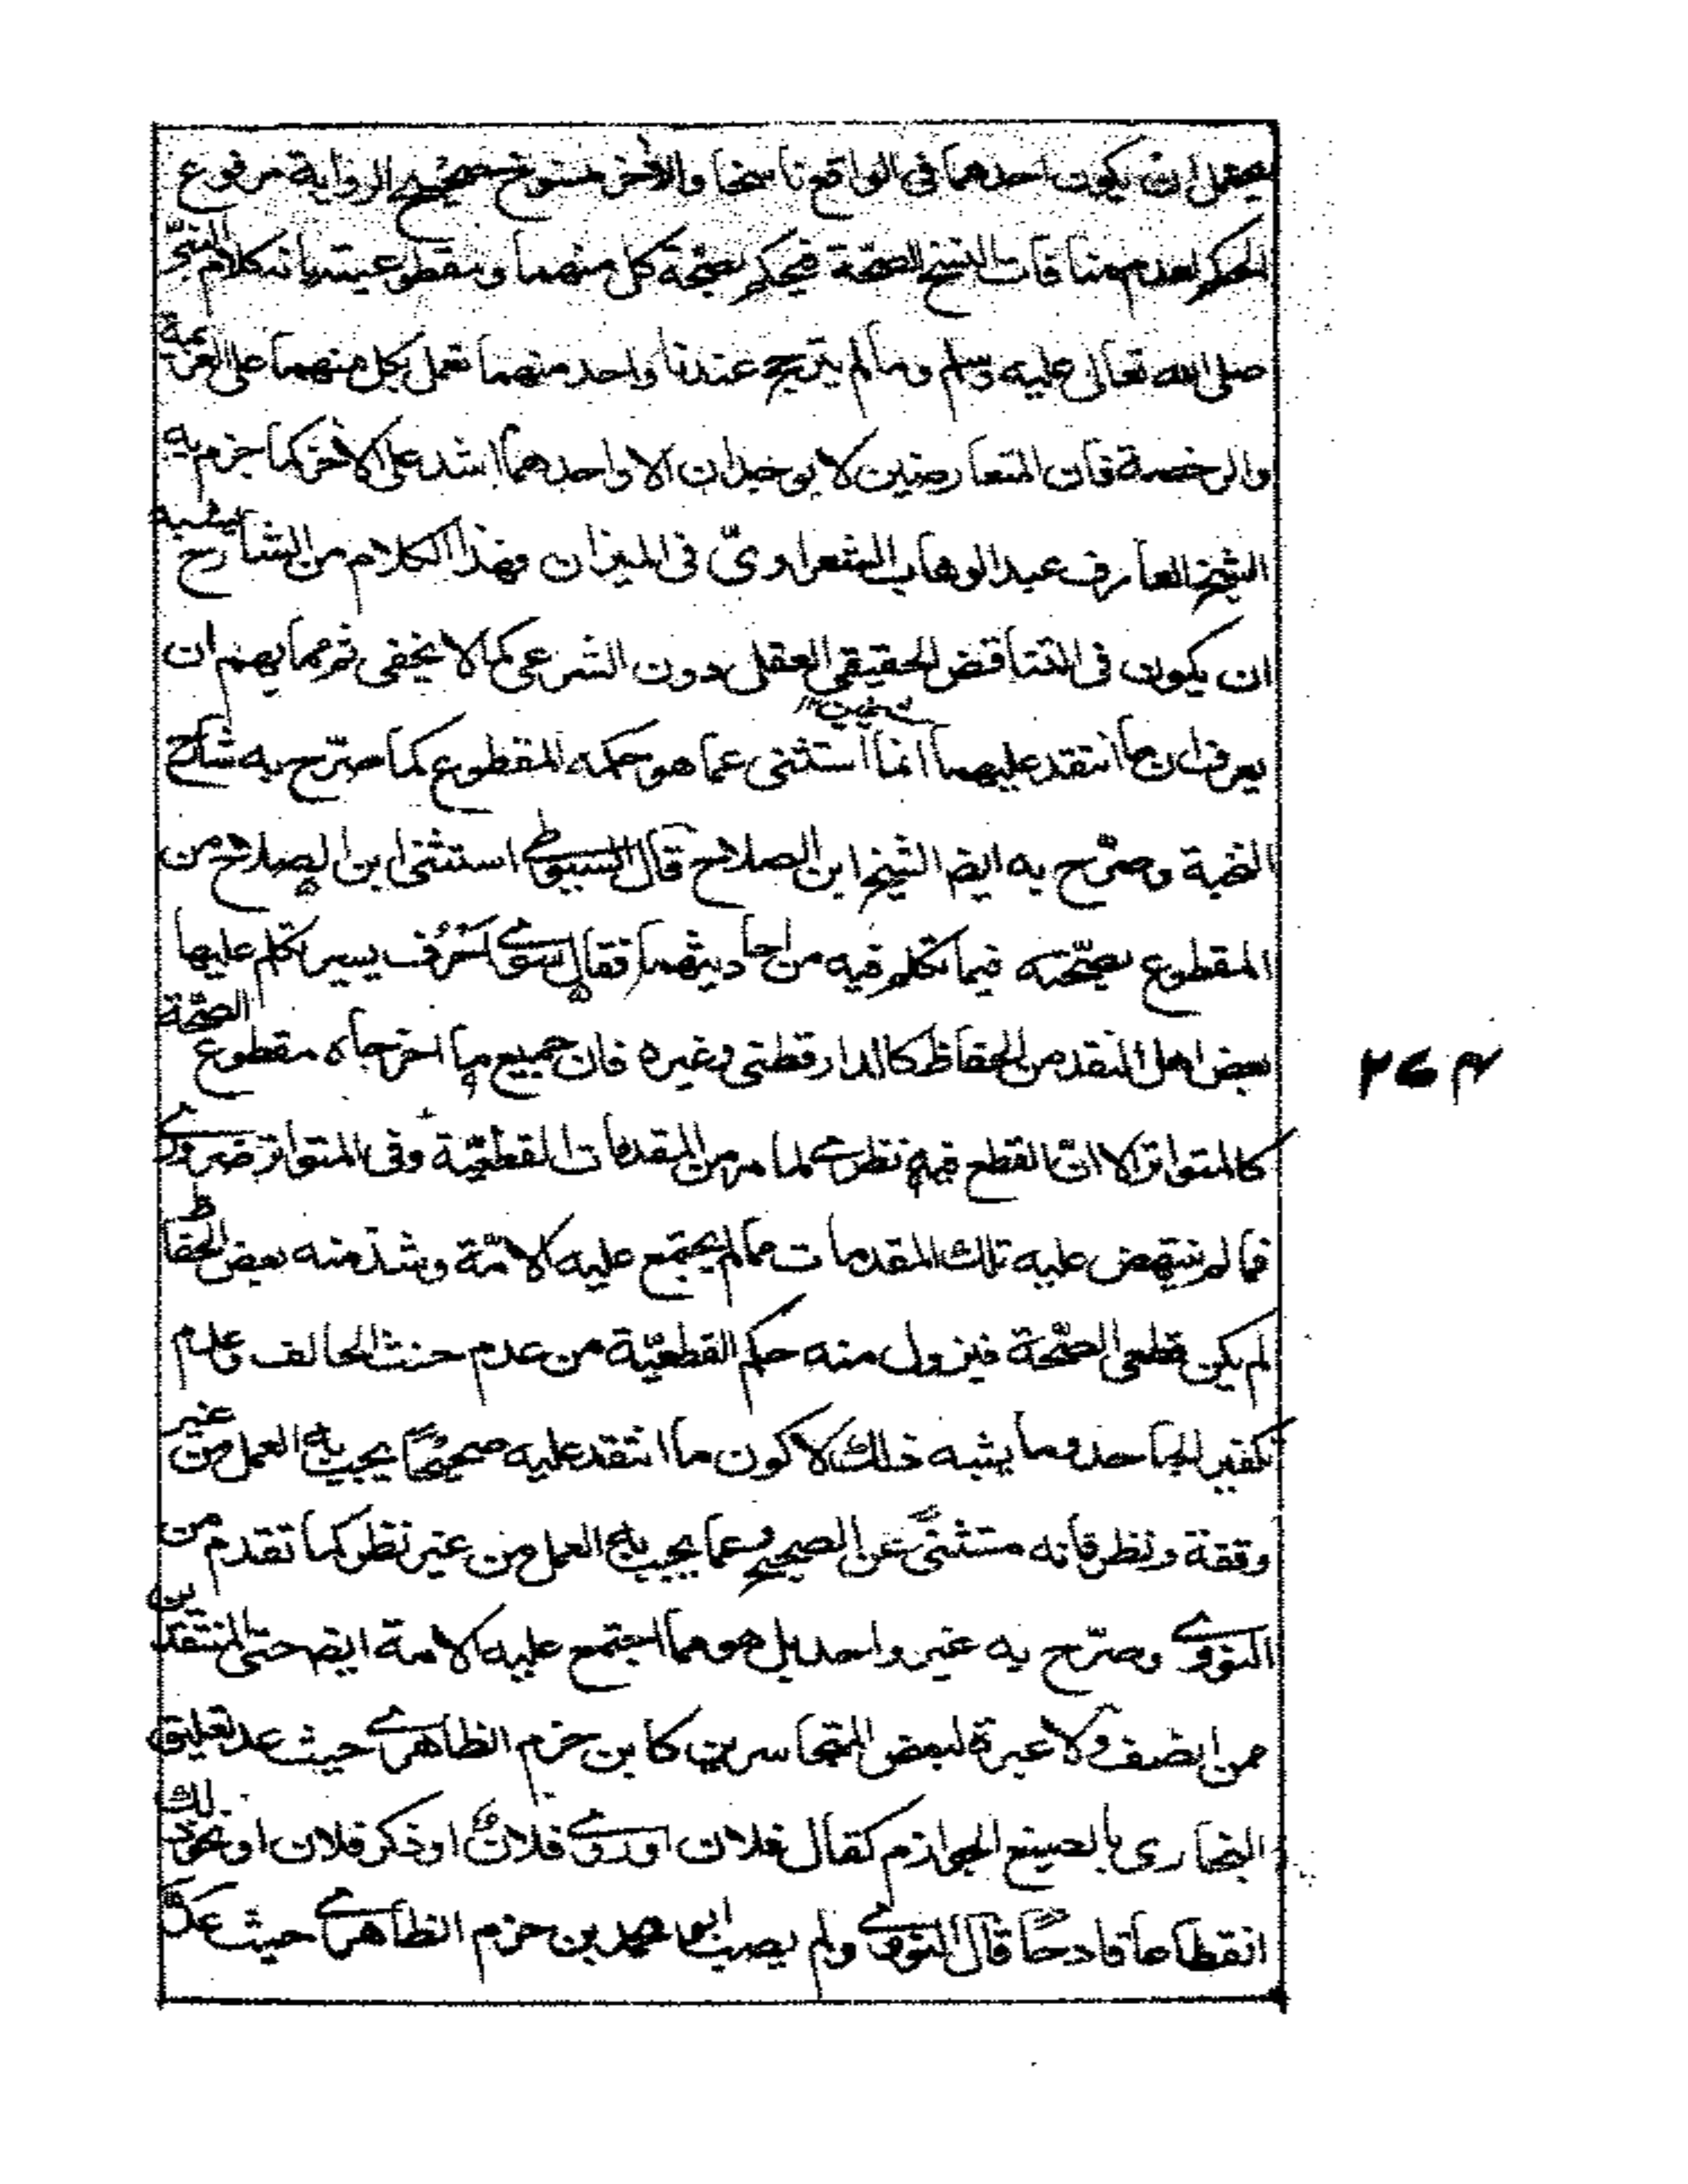 يحتمل ان يكون احدهما فى الواقع ناسخا والاخر منسوخ صحيح الرواية مرفوع
الحكم لعدم منافات النسخ الصحة فيحكم بصحة كل منهما وبمقطوعيته بانه كلام النبى
صلى الله تعالى عليه وسلم وما لم يترجح عندنا واحد منهما نعمل بكل منهما على العزيمة
والرخصة فان المتعارضين لا يوخذان الا واحدهما اشد على الاخر كما جزم به
الشيخ العارف عبد الوهاب الشعراوىّ فى الميزان وهذا الكلام من الشارح
ان يكون فى التناقض الحقيقى العقلى دون الشرعى كما لا يخفى ثم مما يهم ان
يعرف ان ما انتقد عليهما انما استثنى عما هو حكمه المقطوع كما صرّح به شارح
النخبة وصرّح به ايضا الشيخ ابن الصلاح قال السيوطى استثنى ابن الصلاح من
المقطوع بصحّته فيما تكلم فيه من احاديثهما فقال سوى احرف يسير تكلم عليها
بعض اهل النقد من الحفاظ كالدارقطنى وغيره فان جميع ما اخرجاه مقطوع الصحّة
كالمتواتر الا انّ القطع فيه نظرى لما مر من المقدمات القطعيّة وفى المتواتر ضرورى
فما لم ينتهض عليه تلك المقدمات مما لم يجتمع عليه الامّة وشذ منه بعض الحفاظ
لم يكن قطعى الصّحّة فيزول منه حكم القطعيّة من عدم حنث الحالف وعدم
تكفير الجاحد وما يشبه ذلك لا كون ما انتقد عليه صحيحًا يجب به العمل من غير
وقفة ونظر فانه مستثنًى عن الصحيح وعما يجب به العمل من غير نظر كما تقدم من
النووى وصرّح به غير واحد بل هو مما اجتمع عليه الامة ايضا حتى المنتقدين
ممن انصف ولا عبرة لبعض المتجاسرين كابن حزم الظاهرى حيث عد تعليق
البخارى بالصيغ الجوازم كقال فلان اوروى فلانٌ او ذكر فلان او نحو ذلك
انقطاعا قادحًا قال النووى ولم يصب ابو محمد بن حزم الظاهرى حيث عدّ
٢٦٤